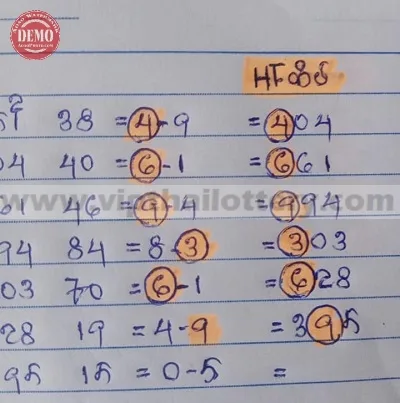 DEMO
38 = 4-9 = 404
04 40 = 6-1 = 661
61 46 = 9-4 = 994
94 84 = 8-3 = 303
03 70 = 6-1 = 628
28 19 = 4-9 = 395
95 15 = 0-5 =